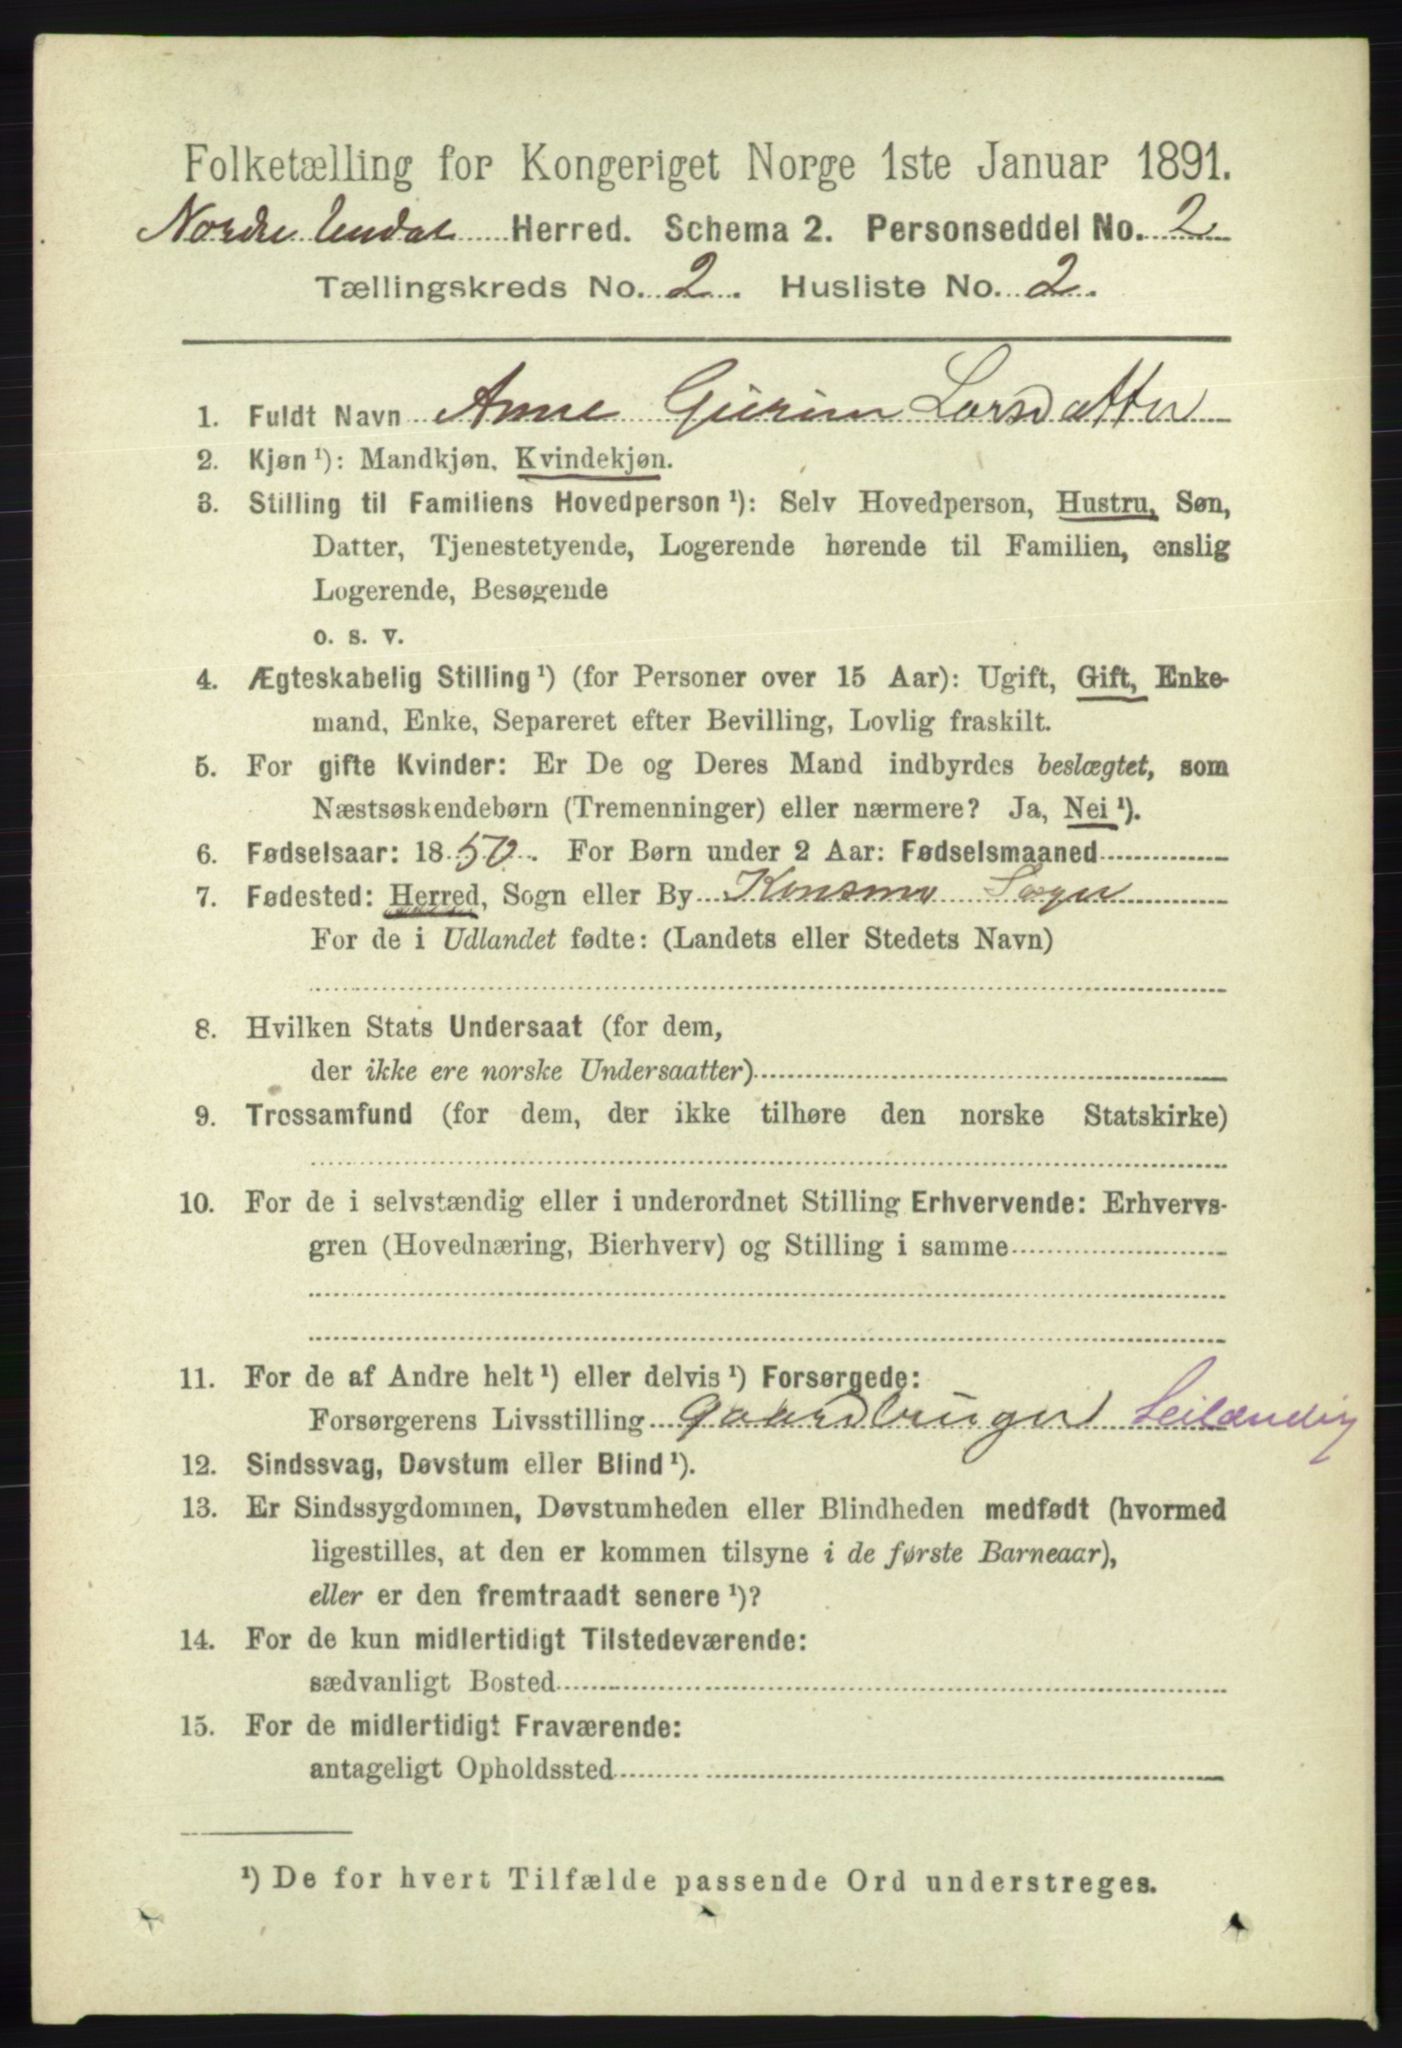 Folketælling for Kongeriget Norge 1ste Januar 1891.
Nordre Undal Herred. Schema 2. Personseddel No. 2
Tællingskreds No. 2. Husliste No. 2.
1. Fuldt Navn Anne Gurine Larsdatter
2. Kjøn ¹): Mandkjøn, Kvindekjøn.
3. Stilling til Familiens Hovedperson ¹): Selv Hovedperson, Hustru, Søn,
Datter, Tjenestetyende, Logerende hørende til Familien, enslig
Logerende, Besøgende
o. s. v.
4. Ægteskabelig Stilling ¹) (for Personer over 15 Aar): Ugift, Gift, Enke-
mand, Enke, Separeret efter Bevilling, Lovlig fraskilt.
5. For gifte Kvinder: Er De og Deres Mand indbyrdes beslægtet, som
Næstsøskendebørn (Tremenninger) eller nærmere? Ja, Nei ¹).
6. Fødselsaar: 1850. For Børn under 2 Aar: Fødselsmaaned
7. Fødested: Herred, Sogn eller By Konsmo Sogn
For de i Udlandet fødte: (Landets eller Stedets Navn)
8. Hvilken Stats Undersaat (for dem,
der ikke ere norske Undersaatter)
9. Trossamfund (for dem, der ikke tilhøre den norske Statskirke)
10. For de i selvstændig eller i underordnet Stilling Erhvervende: Erhvervs-
gren (Hovednæring, Bierhverv) og Stilling i samme
11. For de af Andre helt ¹) eller delvis ¹) Forsørgede:
Forsørgerens Livsstilling Gaardbruger Leilænding
12. Sindssvag, Døvstum eller Blind ¹).
13. Er Sindssygdommen, Døvstumheden eller Blindheden medfødt (hvormed
ligestilles, at den er kommen tilsyne i de første Barneaar),
eller er den fremtraadt senere ¹)?
14. For de kun midlertidigt Tilstedeværende:
sædvanligt Bosted
15. For de midlertidigt Fraværende:
antageligt Opholdssted
¹) De for hvert Tilfælde passende Ord understreges.